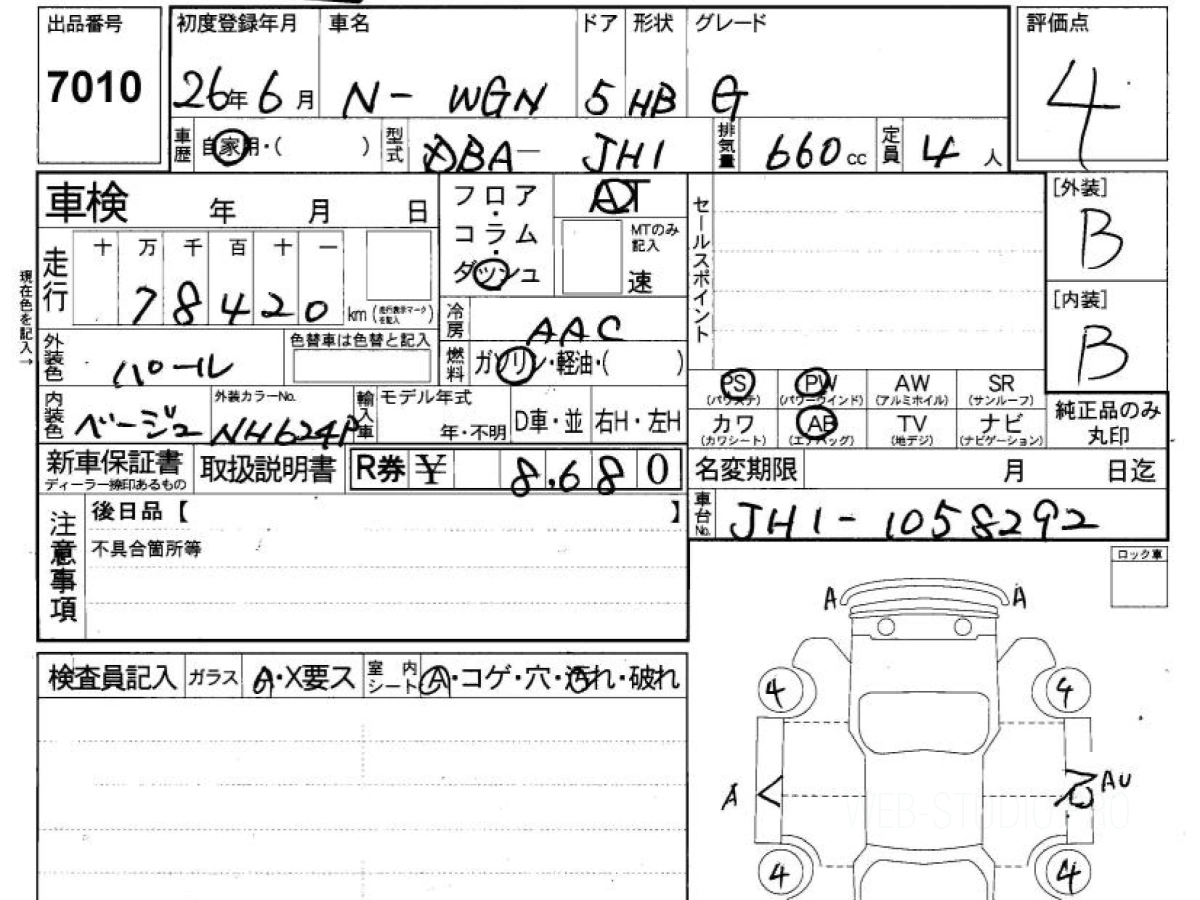 出品番号
7010
初度登録年月
26年6月
車名
N-WGN
ドア
5
形状
HB
グレード
G
評価点
4
車歴
自家用・( )
型式
DBA-JH1
排気量
660cc
定員
4人
車検 年 月 日
フロア・コラム・ダッシュ
AT
MTのみ記入
速
セールスポイント
[外装]
B
[内装]
B
現在色を記入→
走行
十 万 千 百 十 一
78420
km(走行表示マークを記入)
冷房
AAC
燃料
ガソリン・軽油・( )
外装色
パール
色替車は色替と記入
内装色
ベージュ
外装カラーNo.
NH624P
輸入車
モデル年式
年・不明
D車・並
右H・左H
PS
(パワステ)
PW
(パワーウインド)
AW
(アルミホイル)
SR
(サンルーフ)
カワ
(カワシート)
AB
(エアバッグ)
TV
(地デジ)
ナビ
(ナビゲーション)
純正品のみ
丸印
新車保証書
ディーラー捺印あるもの
取扱説明書
R券 ¥ 8,680
名変期限 月 日迄
車台No.
JH1-1058292
注意事項
後日品【 】
不具合箇所等
ロック車
検査員記入
ガラス
A・X要ス
室内シート
A・コゲ・穴・汚れ・破れ
A A
4 4
A AU
4 4
WEB-STUDIO PRO